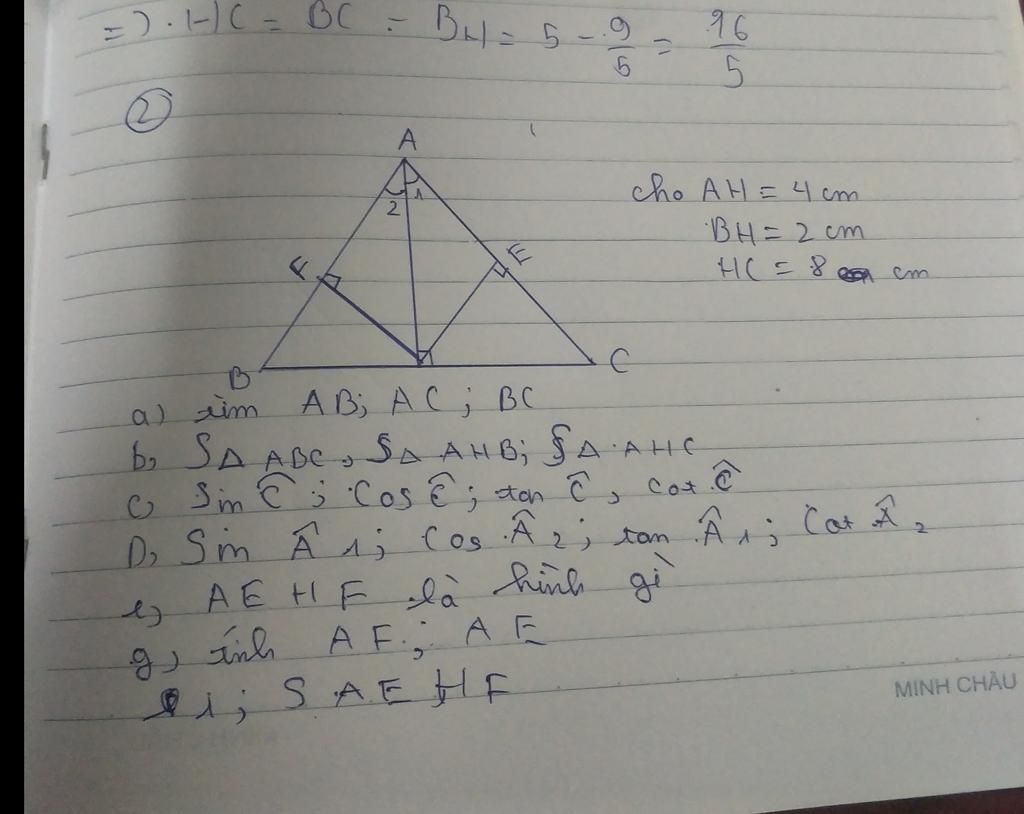 => HC = BC - BH = 5 - 9/5 = 16/5
②
A
2 1
cho AH = 4 cm
BH = 2 cm
HC = 8 cm
F E
B C
a) tìm AB; AC; BC
b, S△ABC, S△AHB; S△AHC
c, Sin Ĉ; Cos Ĉ; tan Ĉ, Cot Ĉ
D, Sin Â1; Cos Â2; tan Â1; Cot Â2
e, AEHF là hình gì
g, tính AF; AE
1; S AEHF
MINH CHÂU